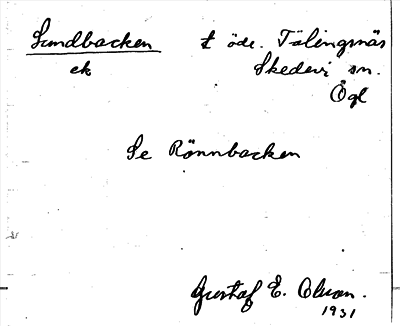 Sundbacken t öde. Tälingsnäs
ek Skedevi sn.
Ögl
Se Rönnbacken
Gustaf E. Olsson.
1931